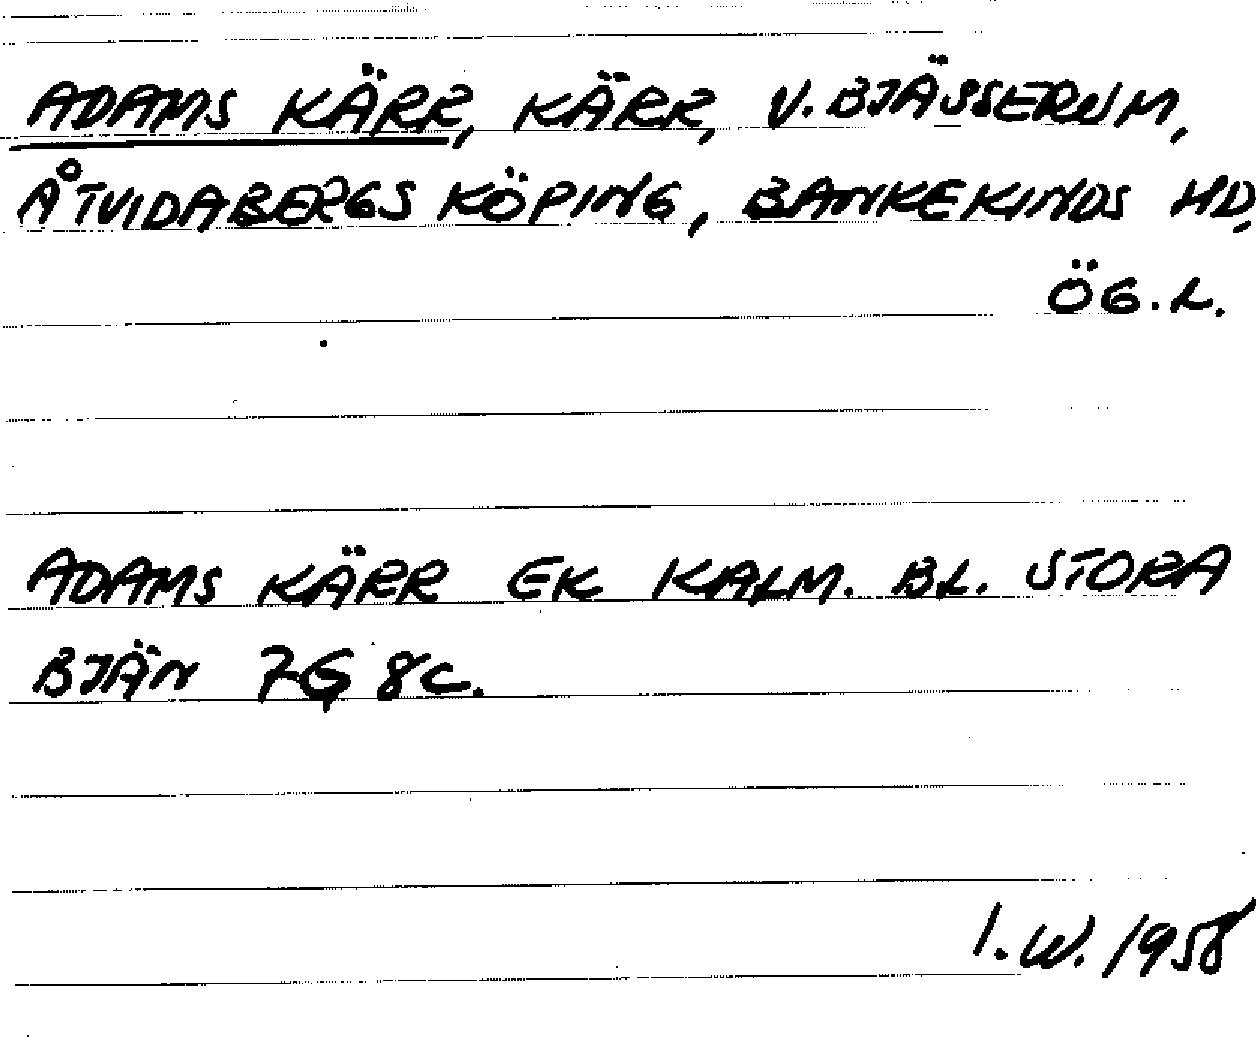 ADAMS KÄRR, KÄRR, V. BJÄSSERUM,
ÅTVIDABERGS KÖPING, BANKEKINDS HD,
ÖG. L.
ADAMS KÄRR EK KALM. BL. STORA
BJÄN 7G 8c.
I.W. 1958